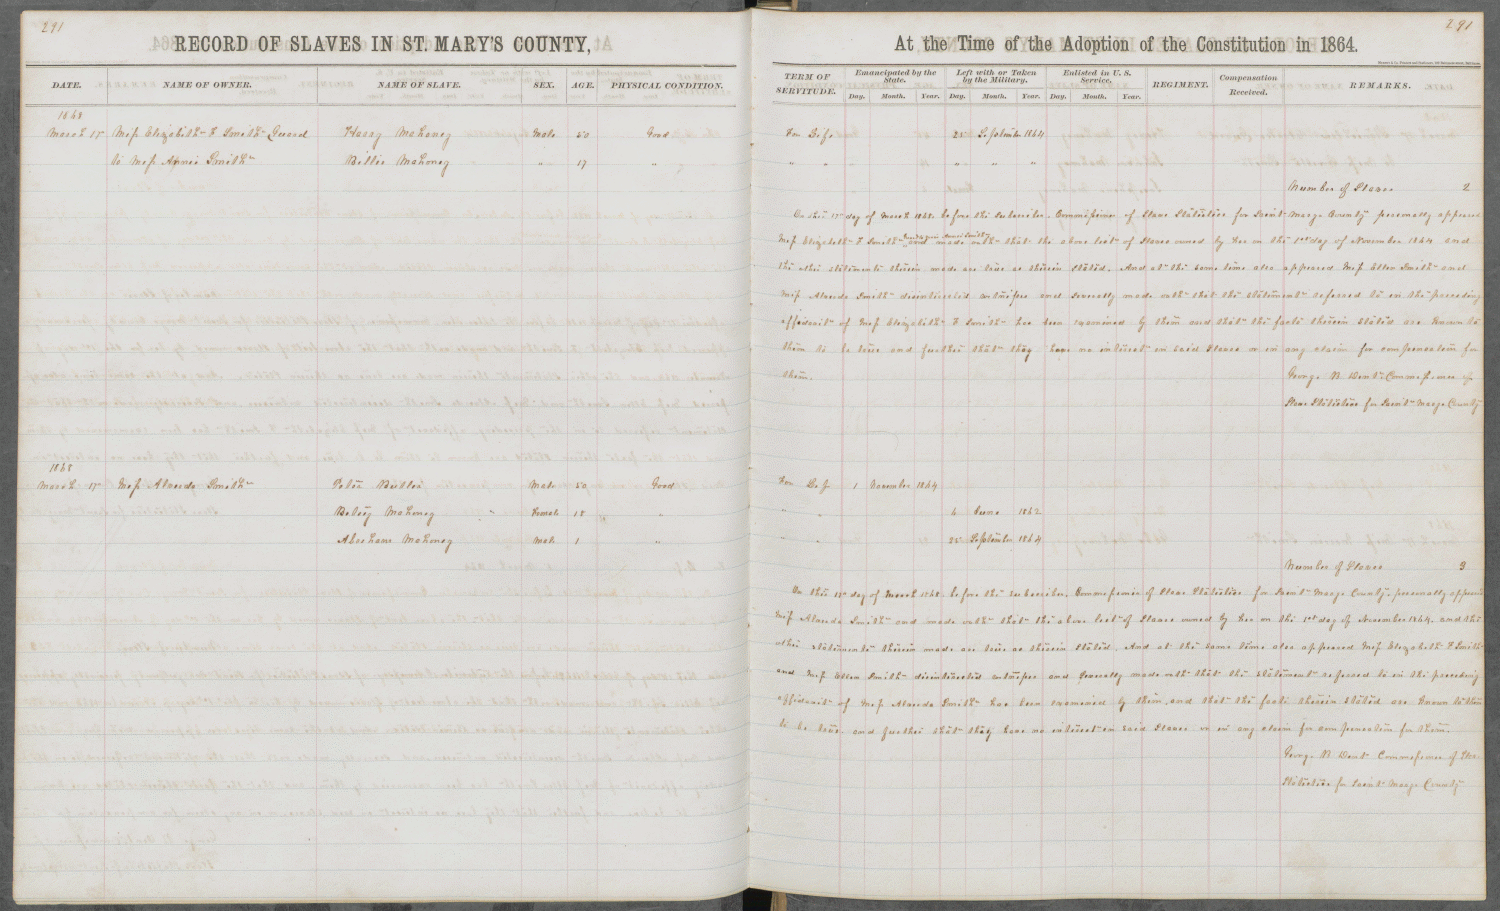 291
RECORD OF SLAVES IN ST. MARY'S COUNTY,
DATE. NAME OF OWNER. NAME OF SLAVE. SEX. AGE. PHYSICAL CONDITION.
1868
March 17 Miss Elizabeth F Smith Guard Henry Mahoney Male 50 Good
to Miss Smith Billie Mahoney " 17 "
1868
March 17 Miss Alverda Smith Peter Butler Male 50 Good
Betsy Mahoney " Female 18 "
Abraham Mahoney Male 1 "
291
At the Time of the Adoption of the Constitution in 1864.
TERM OF SERVITUDE. Emancipated by the State. Left with or Taken by the Military. Enlisted in U. S. Service. REGIMENT. Compensation Received. REMARKS.
Day. Month. Year. Day. Month. Year. Day. Month. Year.
For Life 25 September 1864
" " " " "
Number of Slaves 2
On this 17 day of March 1868 before the Subscriber Commissioner of Slave Statistics for Saint Marys County personally appeared
Miss Elizabeth F Smith and made oath that the above list of Slaves owned by her on the 1st day of November 1864 and
the other statements therein made are true as therein stated. And at the same time also appeared Miss Ellen Smith and
Miss Alverda Smith disinterested witnesses and severally made oath that the statement referred to in the preceding
affidavit of Miss Elizabeth F Smith has been examined by them and that the facts therein stated are known to
them to be true and further that they have no interest in said Slaves or in any claim for compensation for
them.
George B Dent Commissioner of
Slave Statistics for Saint Marys County
For Life 1 November 1864
" " 4 June 1862
" " 25 September 1864
Number of Slaves 3
On this 17 day of March 1868 before the subscriber, Commissioner of Slave Statistics for Saint Marys County personally appeared
Miss Alverda Smith and made oath that the above list of Slaves owned by her on the 1st day of November 1864 and the
other statements therein made are true as therein stated. And at the same time also appeared Miss Elizabeth F Smith
and Miss Ellen Smith disinterested witnesses and severally made oath that the statement referred to in the preceding
affidavit of Miss Alverda Smith has been examined by them, and that the facts therein stated are known to them
to be true and further that they have no interest in said Slaves or in any claim for compensation for them.
George B Dent Commissioner of Slave
Statistics for Saint Marys County